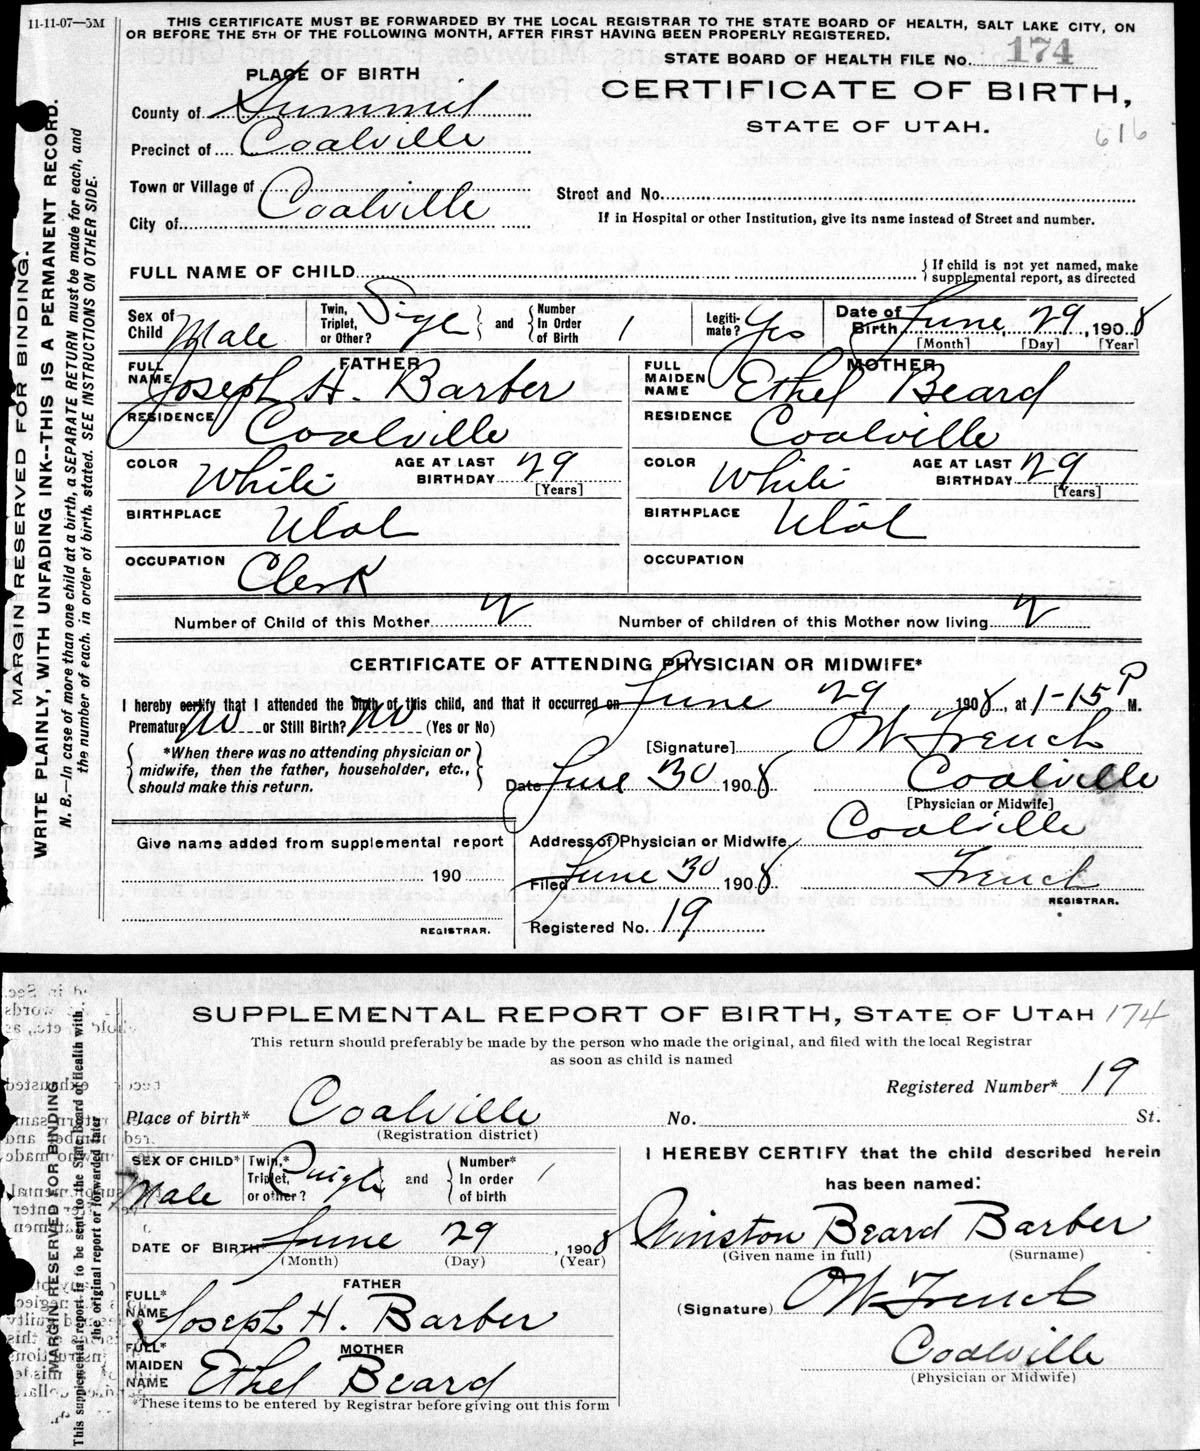 11-11-07—5M
THIS CERTIFICATE MUST BE FORWARDED BY THE LOCAL REGISTRAR TO THE STATE BOARD OF HEALTH, SALT LAKE CITY, ON
OR BEFORE THE 5TH OF THE FOLLOWING MONTH, AFTER FIRST HAVING BEEN PROPERLY REGISTERED.
STATE BOARD OF HEALTH FILE No. 174
PLACE OF BIRTH
CERTIFICATE OF BIRTH,
STATE OF UTAH.
616
County of Summit
Precinct of Coalville
Town or Village of
Coalville
City of
Street and No.
If in Hospital or other Institution, give its name instead of Street and number.
FULL NAME OF CHILD
If child is not yet named, make
supplemental report, as directed
Sex of Child Male
Twin, Triplet, or Other? Sigl
and
Number In Order of Birth 1
Legiti- mate? Yes
Date of Birth June 29 1908
[Month] [Day] [Year]
FATHER
FULL NAME Joseph H. Barber
RESIDENCE Coalville
COLOR White AGE AT LAST BIRTHDAY 29
[Years]
BIRTHPLACE Utah
OCCUPATION Clerk
MOTHER
FULL MAIDEN NAME Ethel Beard
RESIDENCE Coalville
COLOR White AGE AT LAST BIRTHDAY 29
[Years]
BIRTHPLACE Utah
OCCUPATION
Number of Child of this Mother 2 Number of children of this Mother now living 2
CERTIFICATE OF ATTENDING PHYSICIAN OR MIDWIFE*
I hereby certify that I attended the birth of this child, and that it occurred on June 29 1908, at 1-15 P M.
Premature No or Still Birth? No (Yes or No)
*When there was no attending physician or
midwife, then the father, householder, etc.,
should make this return.
[Signature] O W French
Date June 30 1908 Coalville
[Physician or Midwife]
Address of Physician or Midwife Coalville
Filed June 30 1908 French
REGISTRAR.
Registered No. 19
Give name added from supplemental report
190
REGISTRAR.
MARGIN RESERVED FOR BINDING.
WRITE PLAINLY, WITH UNFADING INK--THIS IS A PERMANENT RECORD.
N. B.—In case of more than one child at a birth, a SEPARATE RETURN must be made for each, and
the number of each, in order of birth, stated. SEE INSTRUCTIONS ON OTHER SIDE.
SUPPLEMENTAL REPORT OF BIRTH, STATE OF UTAH 174
This return should preferably be made by the person who made the original, and filed with the local Registrar
as soon as child is named
Registered Number* 19
Place of birth* Coalville No. St.
(Registration district)
SEX OF CHILD* Male
Twin,* Triplet, or other?
and
Number* In order of birth 1
DATE OF BIRTH* June 29, 1908
(Month) (Day) (Year)
FATHER
FULL* NAME Joseph H. Barber
MOTHER
FULL* MAIDEN NAME Ethel Beard
*These items to be entered by Registrar before giving out this form
I HEREBY CERTIFY that the child described herein
has been named:
Winston Beard Barber
(Given name in full) (Surname)
(Signature) O W French
Coalville
(Physician or Midwife)
MARGIN RESERVED FOR BINDING
This supplemental report is to be sent to the State Board of Health with
the original report or forwarded later